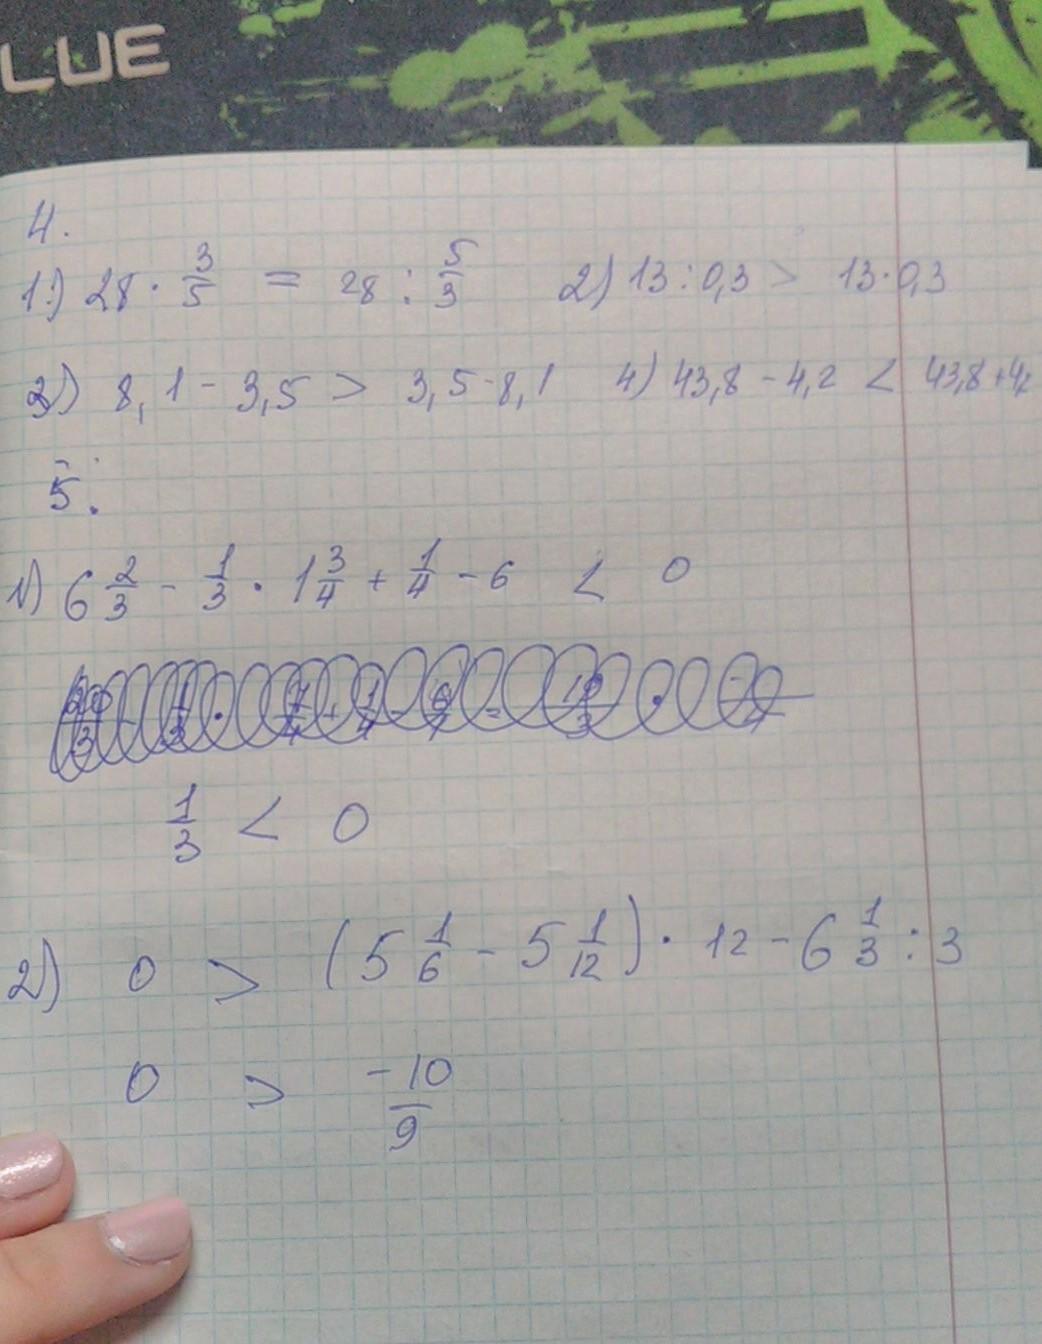 LUE
4.
1.) 28 · 3/5 = 28 : 5/3 2) 13 : 0,3 > 13 · 0,3
3) 8,1 - 3,5 > 3,5 - 8,1 4) 43,8 - 4,2 < 43,8 + 4,2
5.
1) 6 2/3 - 1/3 · 1 3/4 + 1/4 - 6 < 0
1/3 < 0
2) 0 > (5 1/6 - 5 1/12) · 12 - 6 1/3 : 3
0 > -10/9